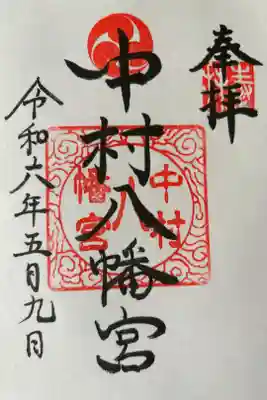 奉拝
中村八幡宮
令和六年五月九日
中村八幡宮